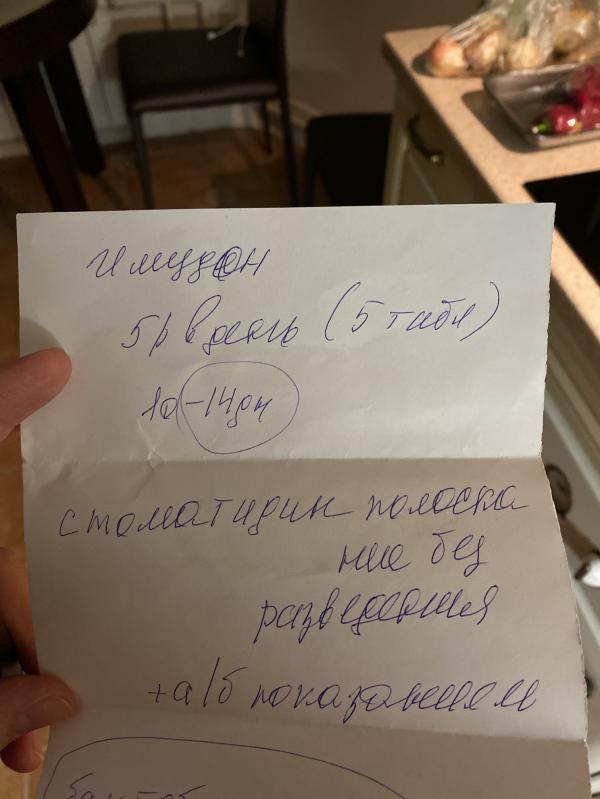 Имудон
5 р в день (5 табл)
10-14 дн
стоматидин полоска
ние без
разведения
+ а/б показаниям